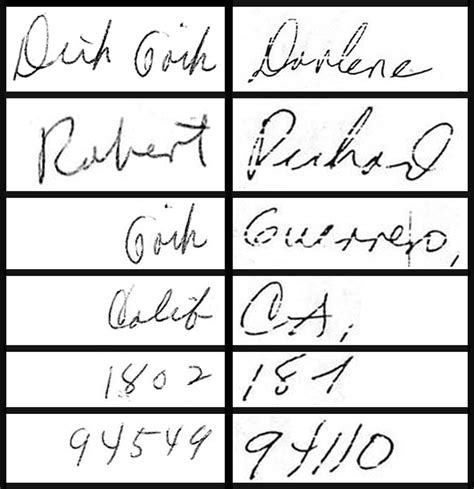 Dick Goik Darlene
Robert Richard
Goik Guerrero,
Calif CA,
1802 181
94549 94110